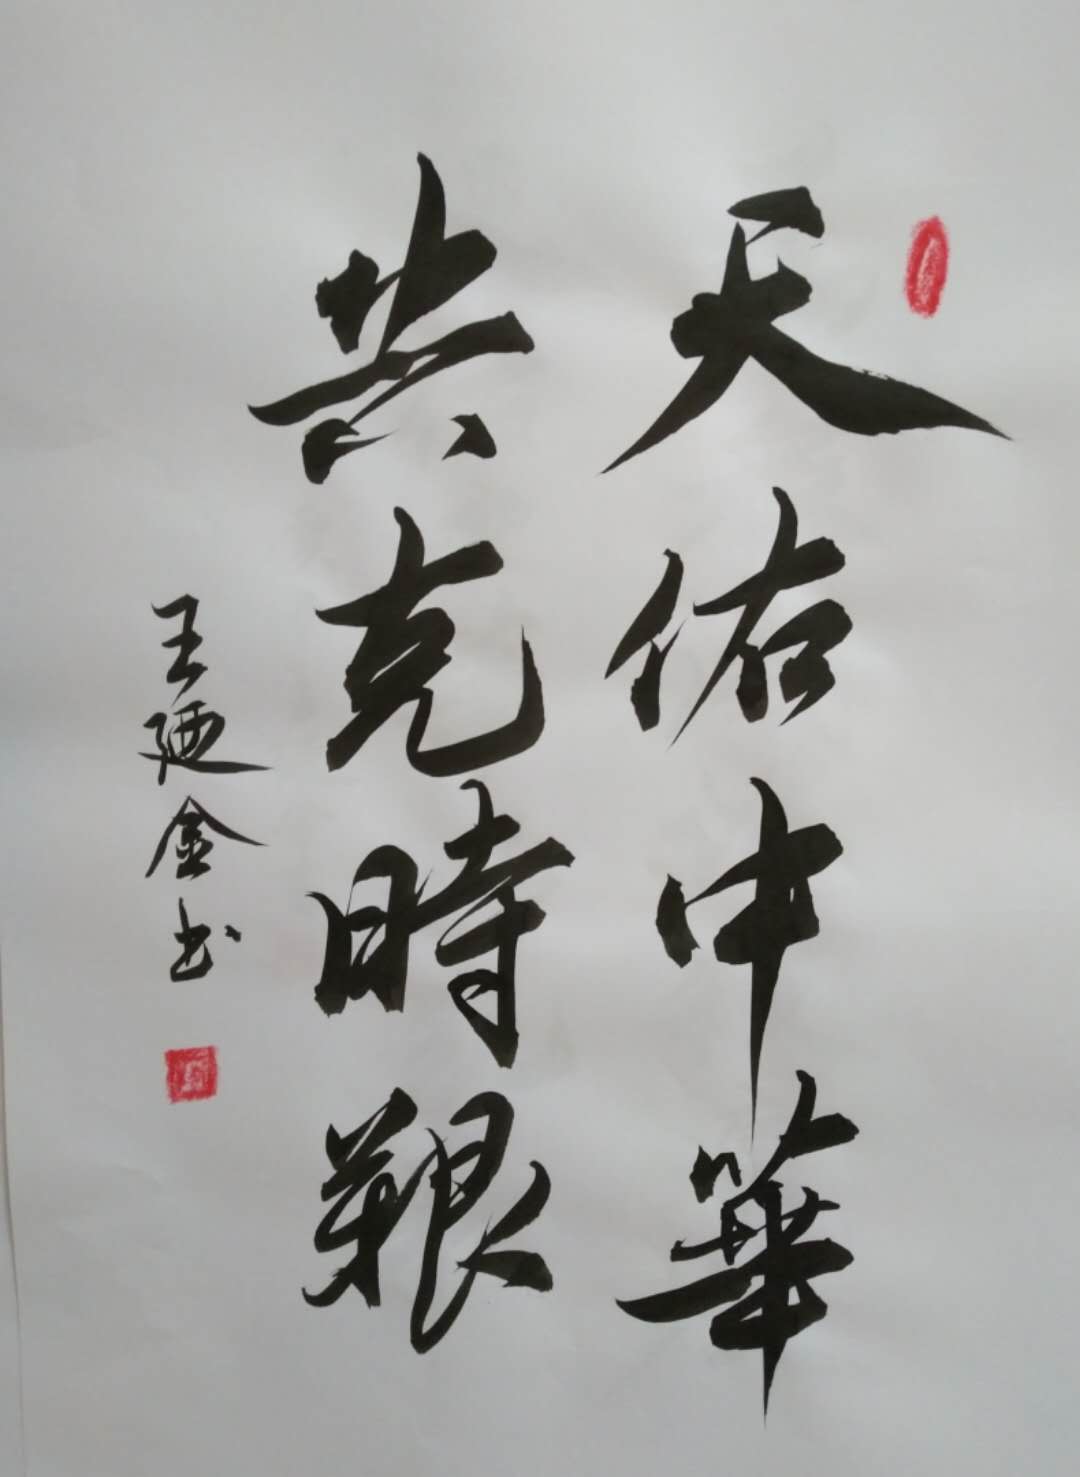 天佑中華
共克時艱
王廼金书